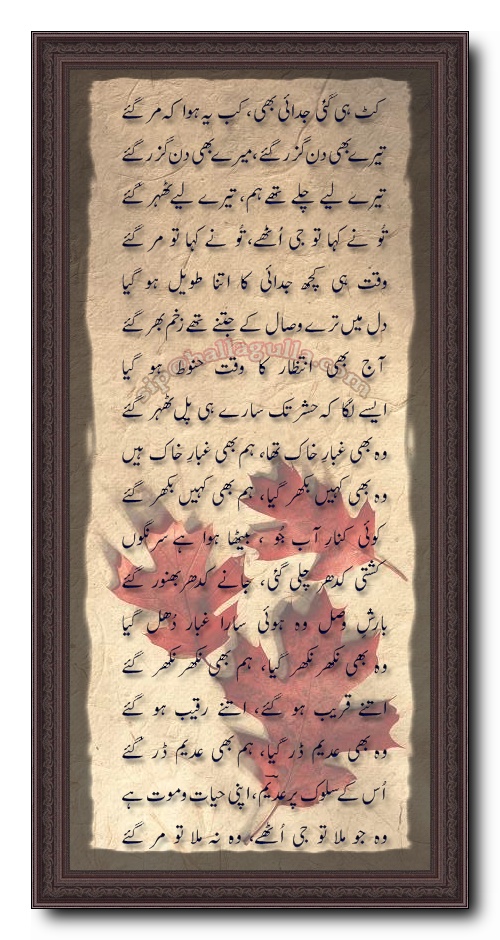 کٹ ہی گئی جدائی بھی، کب یہ ہوا کہ مر گئے
تیرے بھی دن گزر گئے، میرے بھی دن گزر گئے
تیرے لیے چلے تھے ہم، تیرے لیے ٹھہر گئے
تُو نے کہا تو جی اُٹھے، تُو نے کہا تو مر گئے
وقت ہی کچھ جدائی کا اتنا طویل ہو گیا
دل میں ترے وصال کے جتنے تھے زخم بھر گئے
آج بھی انتظار کا وقت حنوط ہو گیا
ایسے لگا کہ حشر تک سارے ہی پل ٹھہر گئے
وہ بھی غبارِ خاک تھا، ہم بھی غبارِ خاک ہیں
وہ بھی کہیں بکھر گیا، ہم بھی کہیں بکھر گئے
کوئی کنارِ آب جُو ، بیٹھا ہوا ہے سرنگوں
کشتی کدھر چلی گئی، جانے کدھر بھنور گئے
بارشِ وصل وہ ہوئی سارا غبار دُھل گیا
وہ بھی نکھر نکھر گیا، ہم بھی نکھر نکھر گئے
اتنے قریب ہو گئے، اتنے رقیب ہو گئے
وہ بھی عدیم ڈر گیا، ہم بھی عدیم ڈر گئے
اُس کے سلوک پر عدیم، اپنی حیات و موت ہے
وہ جو ملا تو جی اُٹھے، وہ نہ ملا تو مر گئے